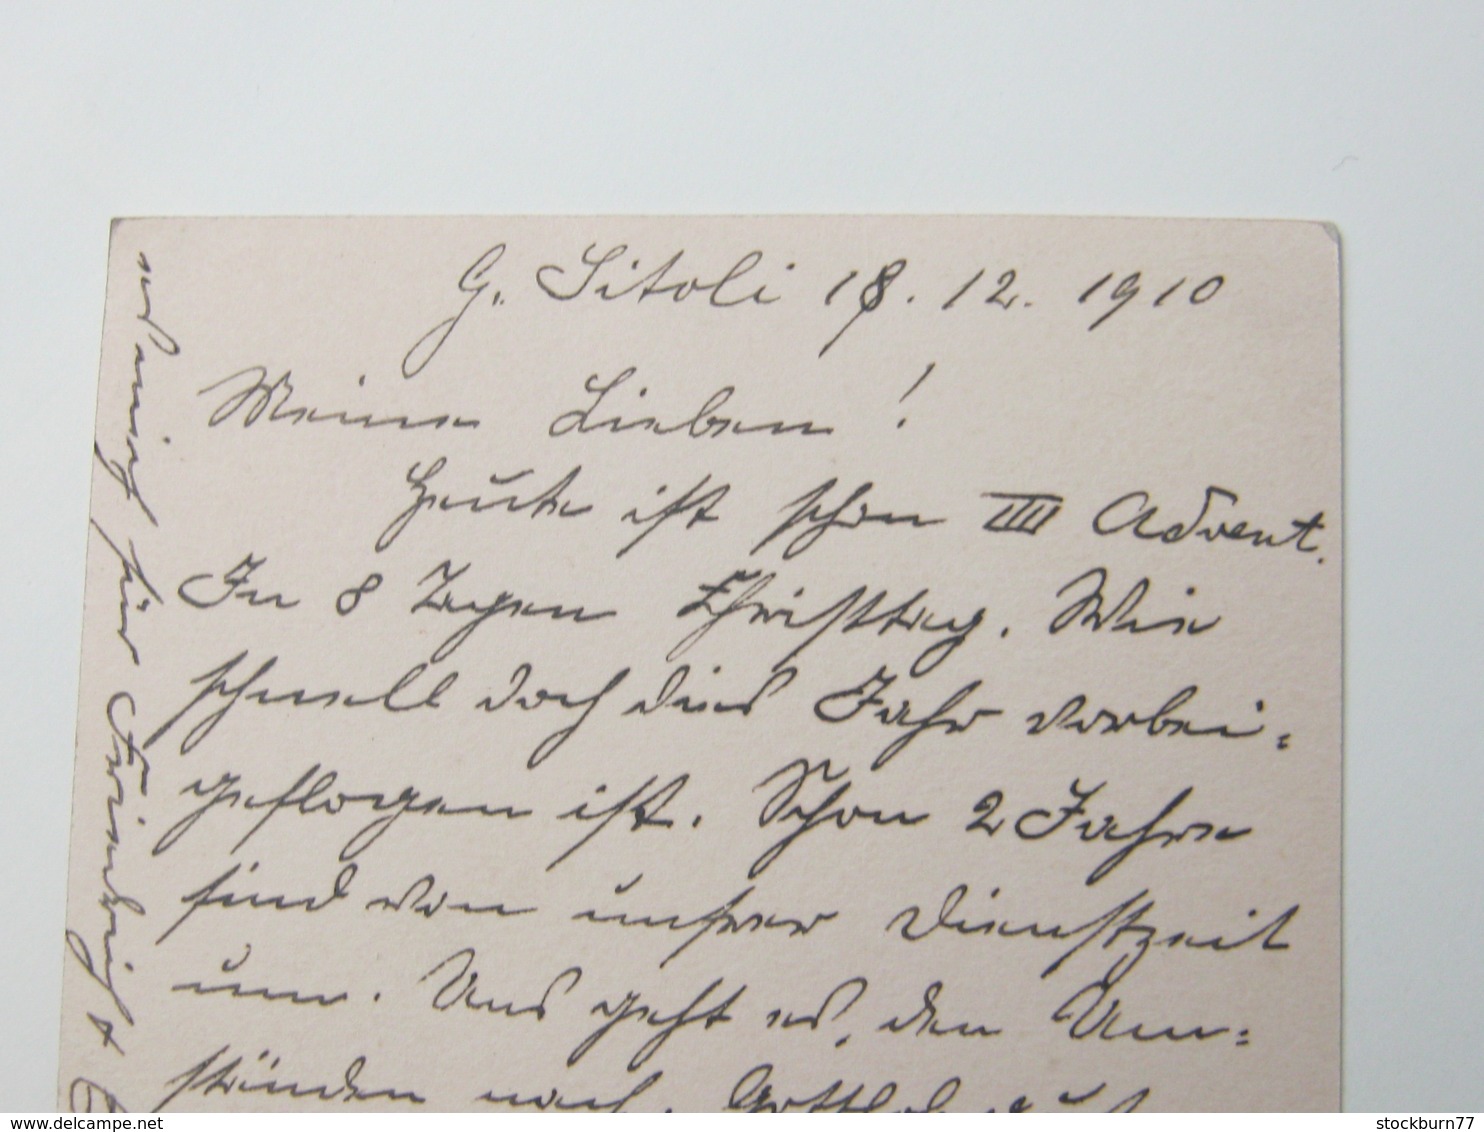 G. Sitoli 18. 12. 1910
Meine Lieben!
Heute ist schon III Advent.
In 8 Tagen Christtag. Wie
schnell doch dies Jahr vorbei=
geflogen ist. Schon 2 Jahre
sind von unsrer Dienstzeit
um. Uns geht es, den Um=
ständen nach, Gottlob
für
delcampe.net
stockburn77